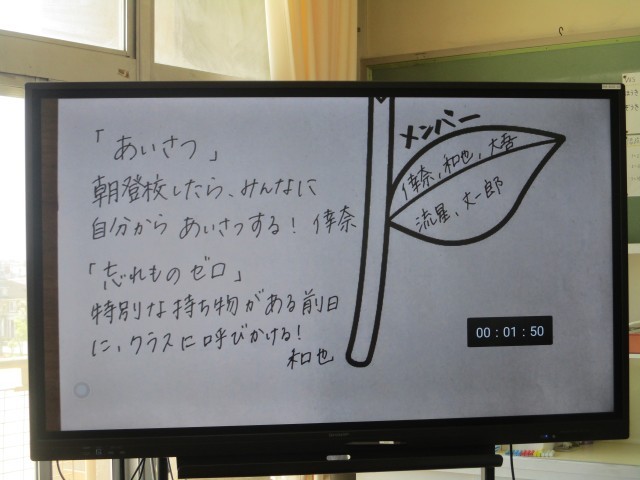 「あいさつ」
朝登校したら、みんなに
自分から あいさつする! 倖奈
「忘れものゼロ」
特別な持ち物がある前日
に、クラスに呼びかける!
和也
メンバー
倖奈、和也、大吾
流星、丈一郎
00:01:50